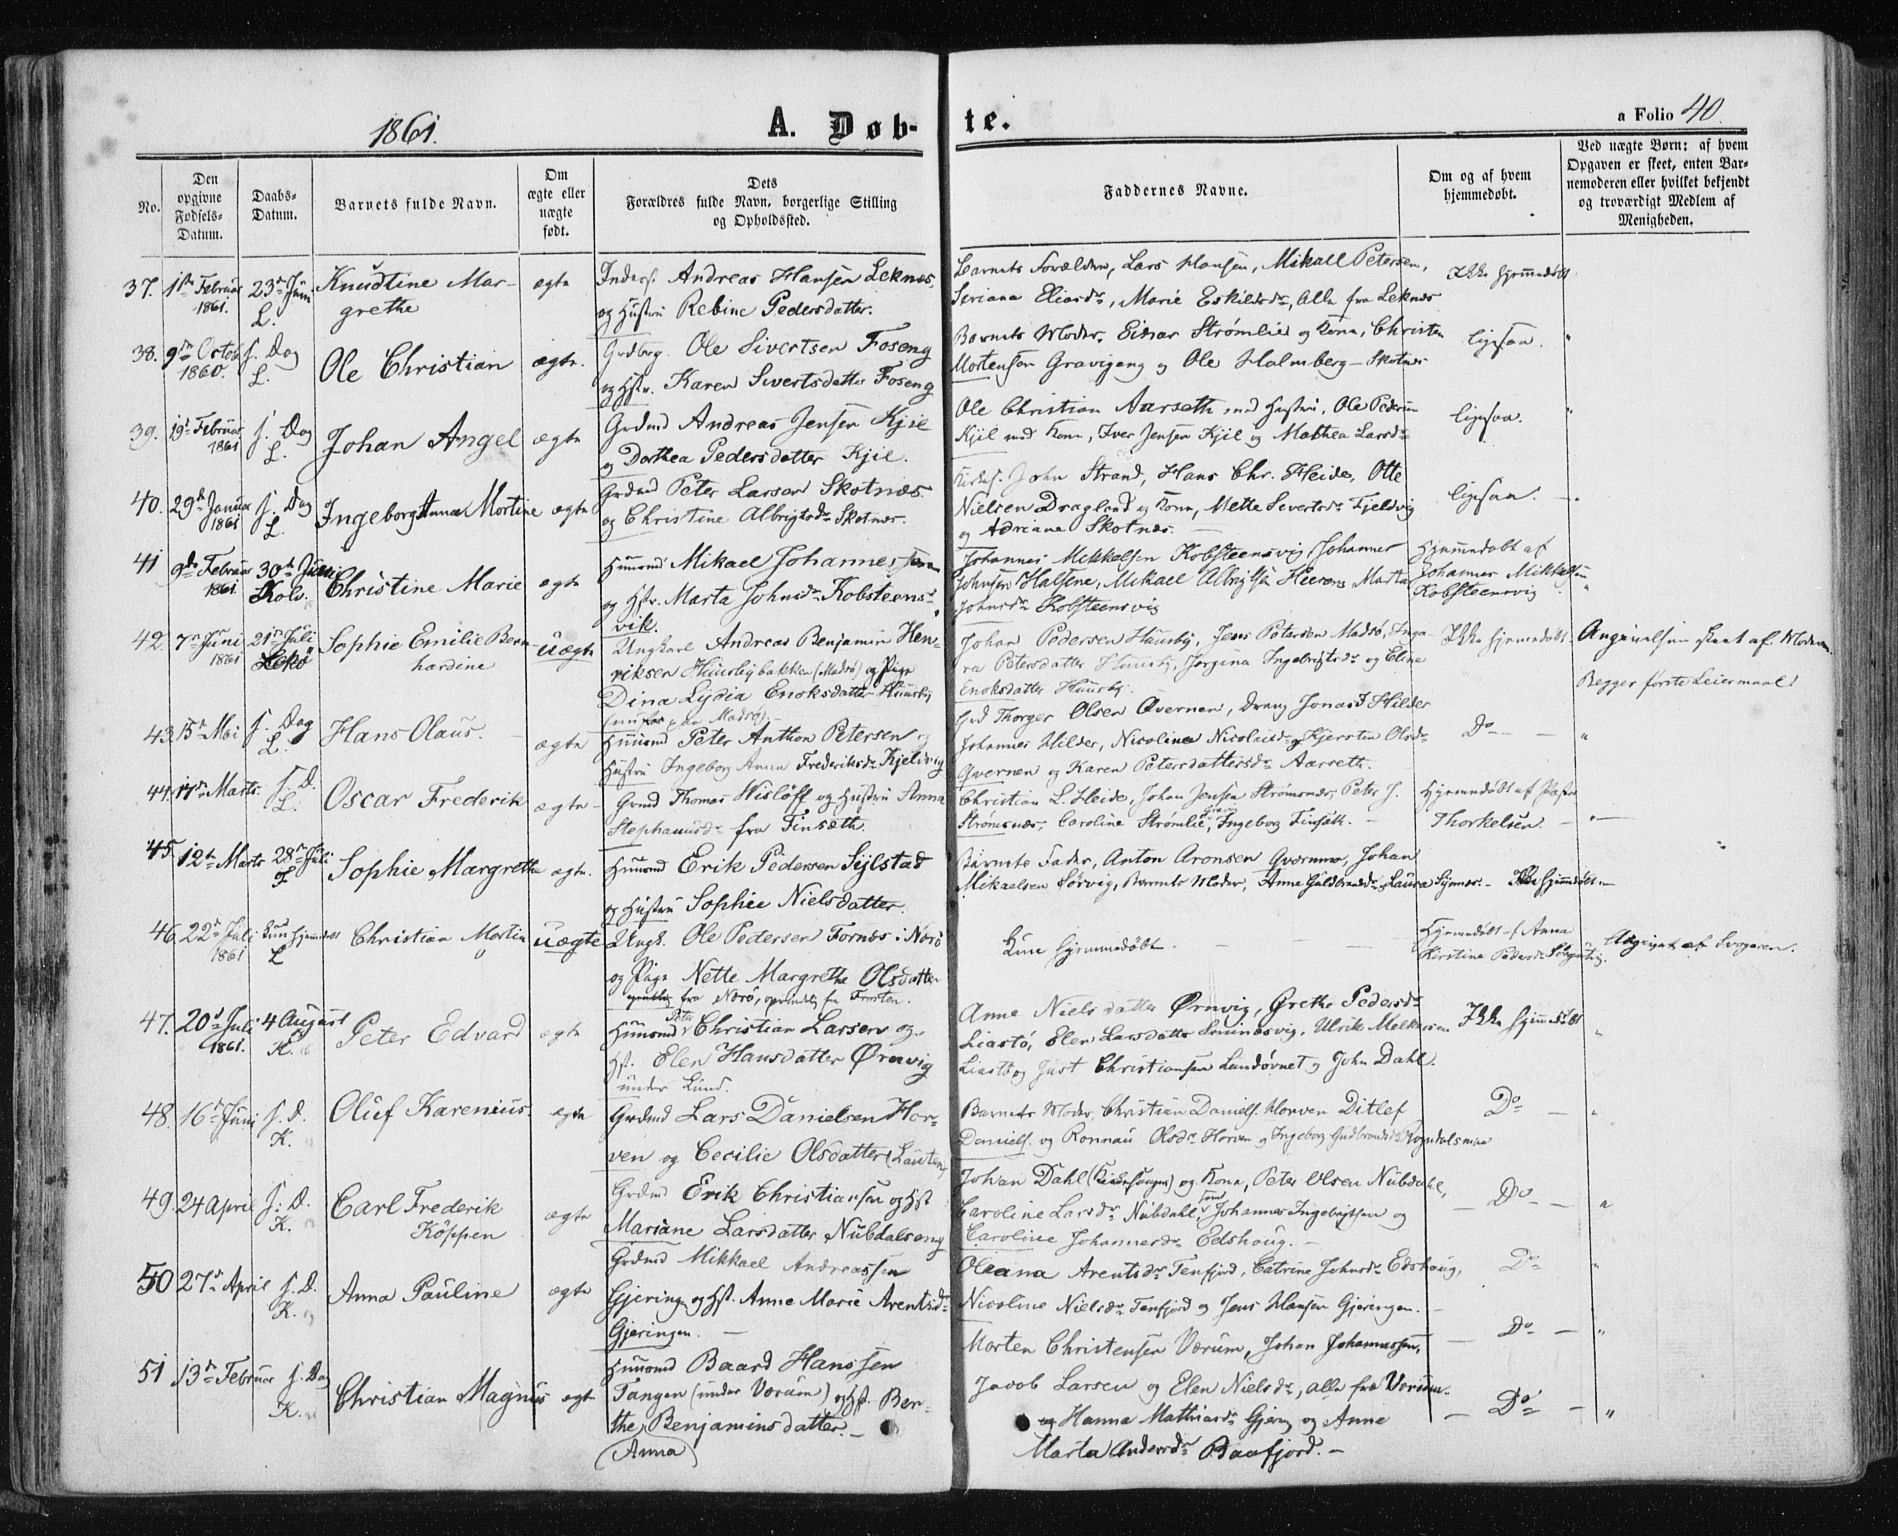 1861.
A. Døb-
te.
a Folio 40.
No.
Den opgivne Fødsels-Datum.
Daabs-Datum.
Barnets fulde Navn.
Om ægte eller uægte født.
Dets Forældres fulde Navn, borgerlige Stilling og Opholdssted.
Faddernes Navne.
Om og af hvem hjemmedøbt.
Ved uægte Børn: af hvem Opgaven er skeet, enten Barnemoderen eller hvilket bekjendt og troværdigt Medlem af Menigheden.
37. 1ste Februar 1861. 23de Juni L. Knudtine Mar-
grethe
ægte
Inders. Andreas Hansen Leknes,
og Hustru Rebine Pedersdatter.
Barnets Forældre, Lars Hansen, Mikall Petersen,
Seriana Eliasdr, Marie Eskildsdr, Alle fra Leknæs
Ikke hjemmedøbt
38. 9de Octob 1860. s. Dag L. Ole Christian
ægte.
Ole Sivertsen Foseng
og Hstr. Karen Sivertsdatter Foseng
Barnets Moder, Einar Strømlie og Kone, Christen
Mortensen Gravigang og Ole Halmberg - Skotnes
ligesaa.
"
39. 19de Februar 1861 s. Dag L. Johan Angel
ægte
Grdmd Andreas Jensen Kjil
og Dorthea Pedersdatter Kjil.
Ole Christian Aarseth med Hustru, Ole Pedersen
Kjil med Kone, Iver Jensen Kjil og Mathea Larsdr
ligesaa.
"
40. 29de Januar 1861 s. Dag L. Ingeborg Anna Mortine
ægte
Grdmd Peter Larsen Skotnæs
og Christine Albrigtsdr Skotnæs.
John Strand, Hans Chr. Heide, Otte
Nielsen Dragland og Kone, Mette Sivertsdr Fjeldvig
og Adriane Skotnæs.
ligesaa.
41 9de Februar 1861. 30te Juni Kolv. Christine Marie
ægte
Huusmd Mikael Johannessen
og Hstr. Marta Johnsdr Kobsteens-
vik.
Johannes Mikkelsen Kobsteensvig Johannes
Johnsen Halsene, Mikael Albrigtsen Marta
Johnsdr Kobsteensvig
Hjemmedøbt af
Johannes Mikkelsen
Kobsteensvig
"
42. 7de Juni 1861 21de Juli Sophie Emilie Bern-
hardine
uægte
Ungkarl Andreas Benjamin Hen-
riksen Huusbybakken (Madsø) og Pige
Dina Lydia Enoksdatter Huusby
Johan Pedersen Huusby, Jens Petersen Madsø, Inga-
ra Petersdatter Huusby, Jørgina Ingebrigtsdr og Eline
Enoksdatter Huusby.
Ikke hjemmedøbt
Angivelsen skeet af Moderen.
Begges første Leiermaal!
43. 15de Mai s. Dag L. Hans Olaus.
ægte
Huusmd Peter Anthon Petersen og
Hustru Ingeborg Anna Frederiksdr Kjeldvig
Thorger Olsen Qvernen, Dreng Jonas Hilder
Johannes Hilder, Nicolina Nicolaisdr og Kjersten Olsdr
Qvernen og Karen Petersdattersdr Aarseth.
Do
"
44. 17de Marts. s. D. L. Oscar Frederik
ægte
Grmd Thomas Wisløff og Hustru Anna
Stephanusdr fra Finsæth.
Christian L. Heide, Johan Jensen Strømsnæs, Peter J.
Strømsnæs, Caroline Strømlie, Ingeborg Finsæth.
Hjemmedøbt af Pastor
Thorkelsen.
"
45. 12te Marts 28de Juli F Sophie Margrethe
ægte.
Huusmd Erik Pedersen Sylstad
og Hustru Sophie Nielsdatter.
Barnets Fader, Anton Aronsen Qværnmo, Johan
Mikaelsen Sørvig, Barnets Moder, Anne Guldbrandsdr, Laura
Ikke hjemmedøbt
46. 22de Juli 1861 kun hjemmedøbt L Christian Martin
uægte
Ungk. Ole Pedersen Fornæs i Nærø
og Pige Nette Margrethe Olsdatter
fra Nærø, oprindelig fra Frosten.
Kun hjemmedøbt.
Hjemmedøbt af Anna
Kerstine Pedersdr
Angivet af Svogeren.
47. 20de Juli 1861. 4 August K. Peter Edvard
ægte
Huusmd Peter Christian Larsen og
Hst. Elen Hansdatter Ørnvig
under Lund.
Anne Nielsdatter Ørnvig, Grethe Pedersdr
Liastø, Elen Larsdatter Ulrik
Liastø og Just Christiansen Lundøvnet og John Dahl.
Ikke hjemmedøbt
"
48. 16de Juni s. D. K. Oluf Karenius
ægte
Grdmd Lars Danielsen Hor-
ven og Cecilie Olsdatter
Barnets Moder, Christian Daniels. Horven Ditlef
Daniels. og Ronnau Olsdr Horven og Ingeborg Gudbrandsdr
Do
"
49. 24 April s. D. K. Carl Frederik
Köppen
ægte
Grdmd Erik Christiansen og Hst
Mariane Larsdatter Nubdalseng
Johan Dahl (Kirkesanger) og Kone, Peter Olsen Nubdahl,
Caroline Larsdr Nubdahl, Johannes Ingebrigtsen og
Caroline Johannesdr Edshoug.
Do
"
50 27de April s. D. K. Anna Pauline
ægte
Grdmd Mikkael Andreassen
Gjeringen og Hst. Anne Marie Arentsdr
Gjeringen.
Oleana Arentsdr Tenfjord, Catrine Johnsdr Edshoug,
Nicoline Nielsdr Tenfjord og Jens Hansen Gjeringen.
Do
"
51 13de Februar s. Dag K. Christian Magnus
ægte
Huusmd Baard Hanssen
Tangen (under Værum) og Hst. Ben-
the Benjaminsdatter.
(Anna)
Morten Christensen Værum, Johan Johannessen,
Jacob Larsen og Elen Nielsdr, alle fra Værum
og Hanna Mathiasdr Gjering og Anne
Marta Andersdr Baafjord.
Do
Do
"